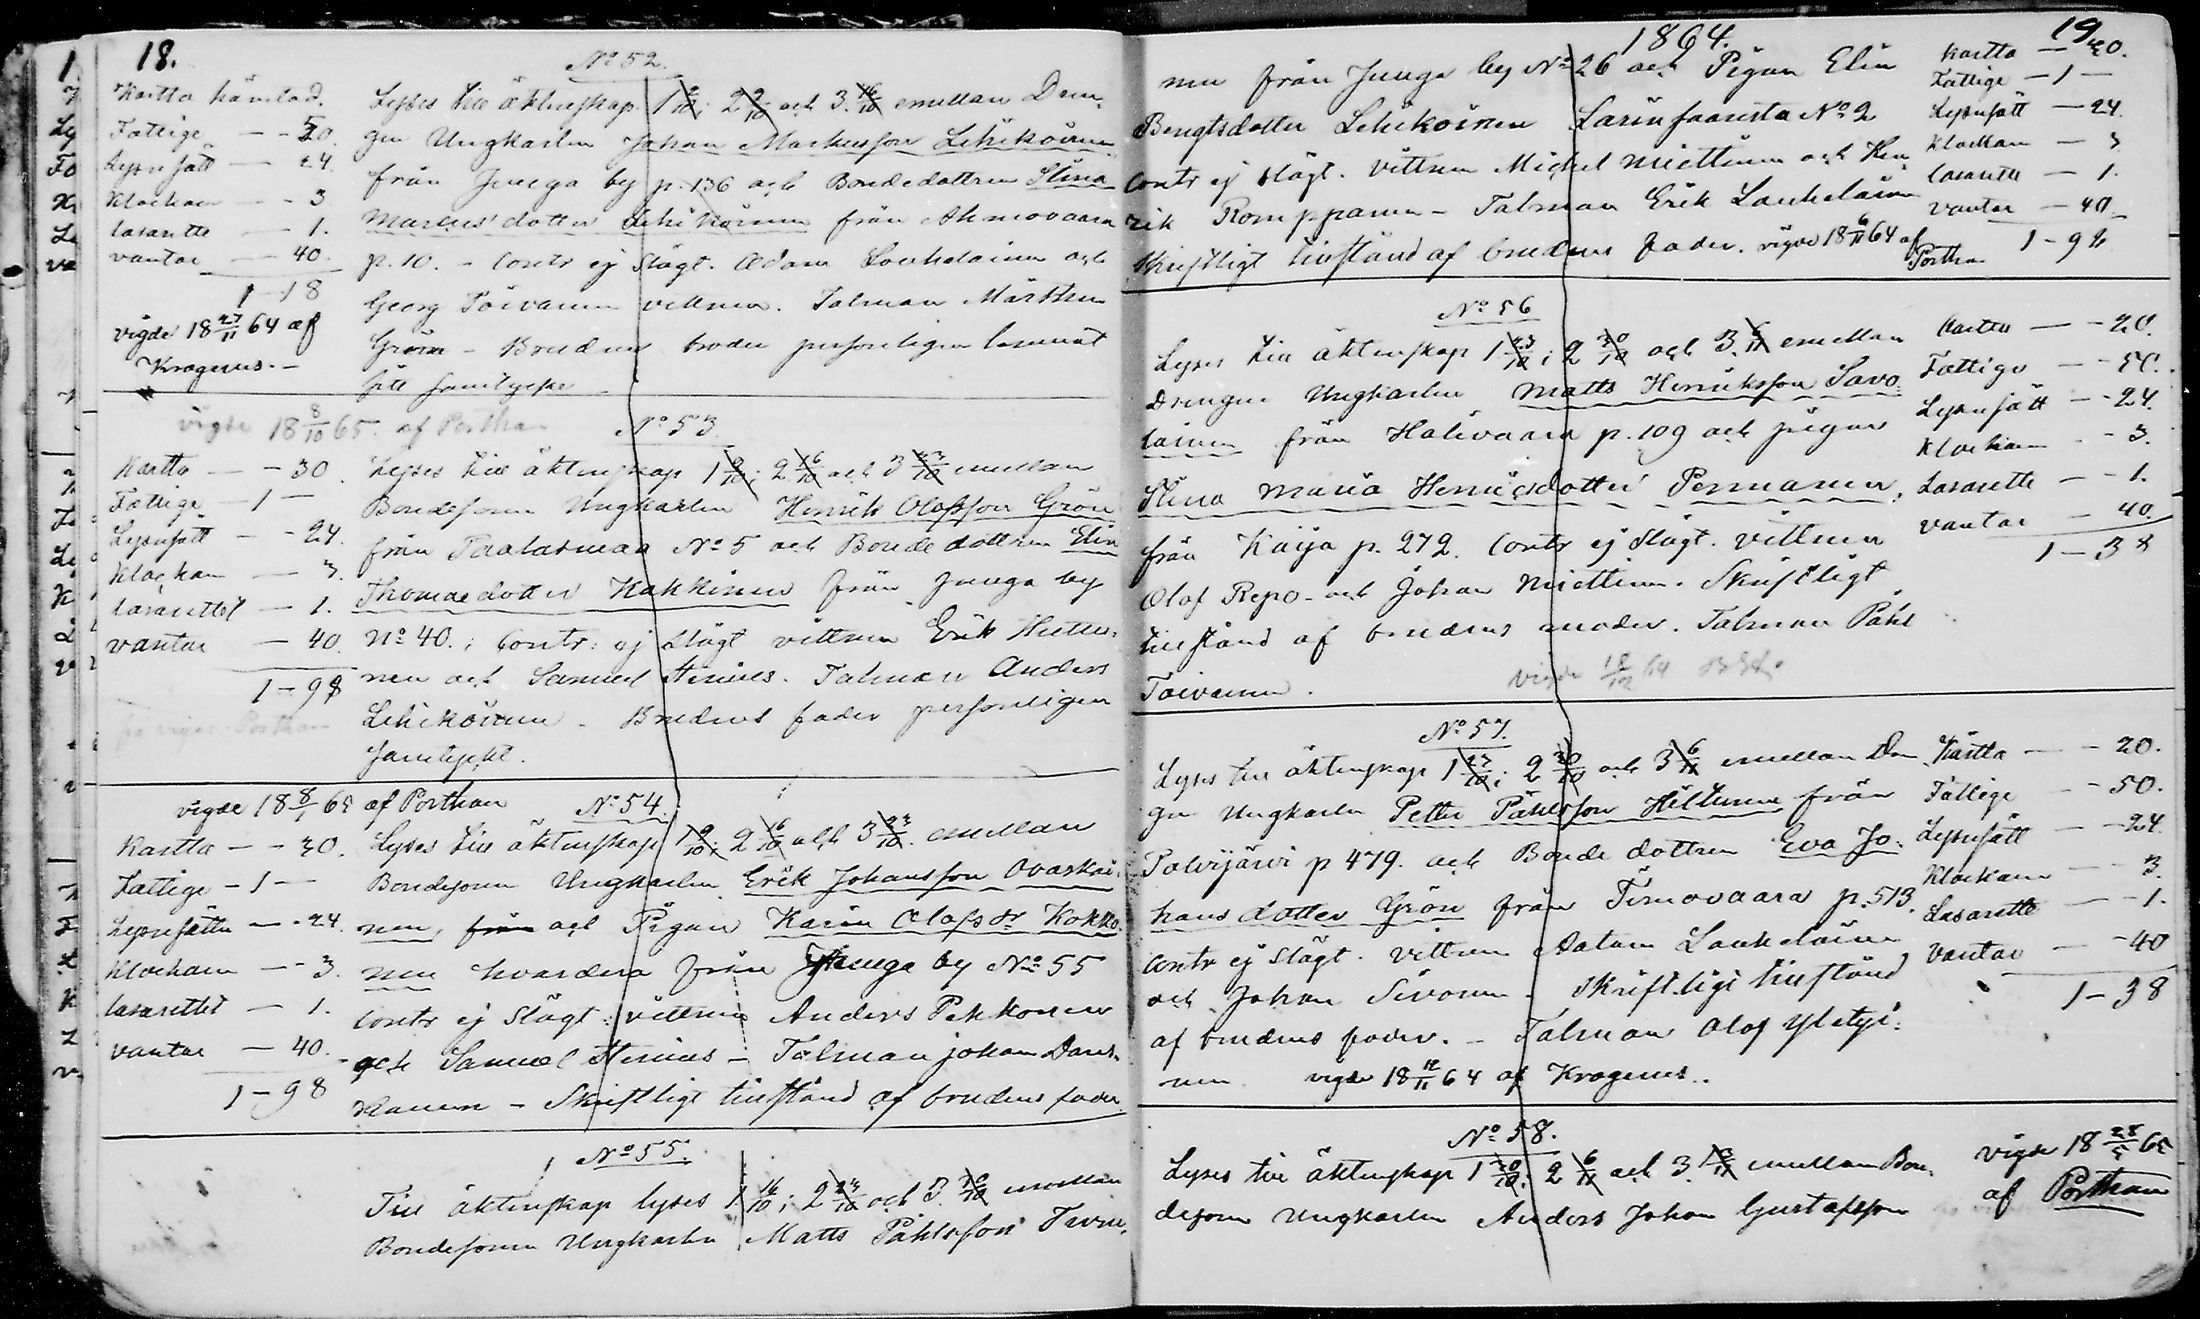 18.
No 52.
Kartta hämtad.
Fattige — 50.
Lysnsätt — 24.
Klockan — 3
Lasarette — 1.
vantar — 40.
1-18
vigde 18 27/11 64 af
Krogerus.-
Lyses till äktenskap 1 2/10; 2 9/10 och 3. 16/10 emellan Drän-
gen Ungkarlen Johan Markusson Lehikoinen
från Juuga by p. 136 och Bondedottren Stina
Marcus dotter Lehikoinen från Ahmovaara
p. 10. - Contr ej Slägt. Adam Laukalainen och
Georg Toivanen vittnen. Talman Mårthen
Grön - Brudens broder personligen lemnat
sitt samtycke
vigde 18 8/10 65. af Porthan
No 53
Kartta — 30.
Fattige — 1 —
Lysnsätt — 24.
Klockan — 3.
Lasarettet — 1.
vantar — 40.
1-98
Lyses till äktenskap 1 9/10; 2 16/10 och 3 23/10 emellan
Bondesonen Ungkarlen Henrik Olofsson Grön
från Paalasmaa No 5 och Bonde dottren Elin
Thomasdotter Hakkinen från Juuga by
No 40.; Contr: ej Slägt vittnen Erik Huttu-
nen och Samuel Henius. Talman Anders
Lehikoinen - Brudens fader personligen
samtyckt.
vigde 18 8/1 65 af Porthan
No 54.
Kartta — 30.
Fattige — 1 —
Lysnsätte — 24.
Klockan — 3.
Lasarettet — 1.
vantar — 40.
1-98
Lyses till äktenskap 1 9/10; 2 16/10 och 3 23/10 emellan
Bondesonen Ungkarlen Erik Johansson Ovaskai-
nen, från och Pigan Karin Olofsdr Kokko-
nen hvardera från Juuga by No 55
Contr ej Slägt: vittnen Anders Pekkonen
och Samuel Henius - Talman johan Dans-
kanen - Skriftligt tillstånd af brudens fader
No 55.
Till äktenskap lyses 1 16/10; 2 23/10 och 3 30/10 emellan
Bondesonen Ungkarlen Matts Påhlsson
1864.
19.
nen från Juuga by No 26 och Pigan Elin
Bengtsdotter Lehikoinen Larinsaarista No 2
Contr ej Slägt. vittnen Michel Miettinen och Hen-
rik Romppanen - Talman Erik Laukalainen
Skriftligt tillstånd af brudens fader. vigde 18 6/11 64 af
Porthan
Kartta — 20.
Fattige — 1 —
Lysnsätt — 24.
Klockan — 3
Lasarette — 1.
vantar — 40
1-98
No 56
Lyses till äktenskap 1 23/10; 2 30/10 och 3. 6/11 emellan
Drengen Ungkarlen Matts Henriksson Savo-
lainen från Halivaara p. 109 och pigan
Stina Maria Henricsdotter Pennanen,
från Kaija p. 272. Contr ej Slägt. vittnen
Olof Repo - och Johan Miettinen. Skriftligt
tillstånd af brudens moder. Talman Påhl
Toivanen.
Kartta — 20.
Fattige — 50.
Lysnsätt — 24.
Klockan — 3.
Lasarette — 1.
vantar — 40.
1-38
No 57.
Lyses till äktenskap 1 23/10; 2 30/10 och 3 6/11 emellan Drän-
gen Ungkarlen Petter Påhlsson Hiltunen från
Polvijärvi p 479. och Bonde dottren Eva Jo-
hans dotter Grön från Timovaara p. 513.
Contr ej Slägt. vittnen Aatam Laukalainen
och Johan Sivonen - Skriftligt tillstånd
af brudens fader. - Talman Olof Yletyi-
nen vigde 18 12/11 64 af Krogerus..
Kartta — 20.
Fattige — 50.
Lysnsätt — 24.
Klockan — 3.
Lasarette — 1.
vantar — 40
1-38
No 58.
Lyses till äktenskap 1 30/10; 2 6/11 och 3. 13/11 emellan Bon-
desonen Ungkarlen Anders Johan Gustafsson
vigde 18 28/5 65
af Porthan